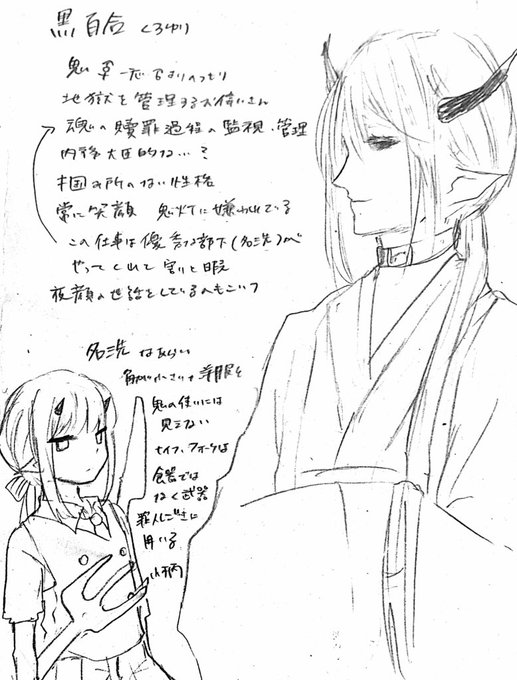 黒百合 くろゆり
鬼 一応 のつもり
地獄を管理するお偉いさん
魂の贖罪過程の監視・管理
内務大臣的な…?
掴み所のない性格
常に笑顔 鬼灯に嫌われている
この仕事は優秀な部下(名洗)が
やってくれて割と暇
夜顔の世話をしているのもこいつ
名洗 なあらい
角が小さい+洋服で
鬼の使いには
見えない
ナイフ、フォークは
食器では
なく武器
罪人しごきに
用いる
小柄